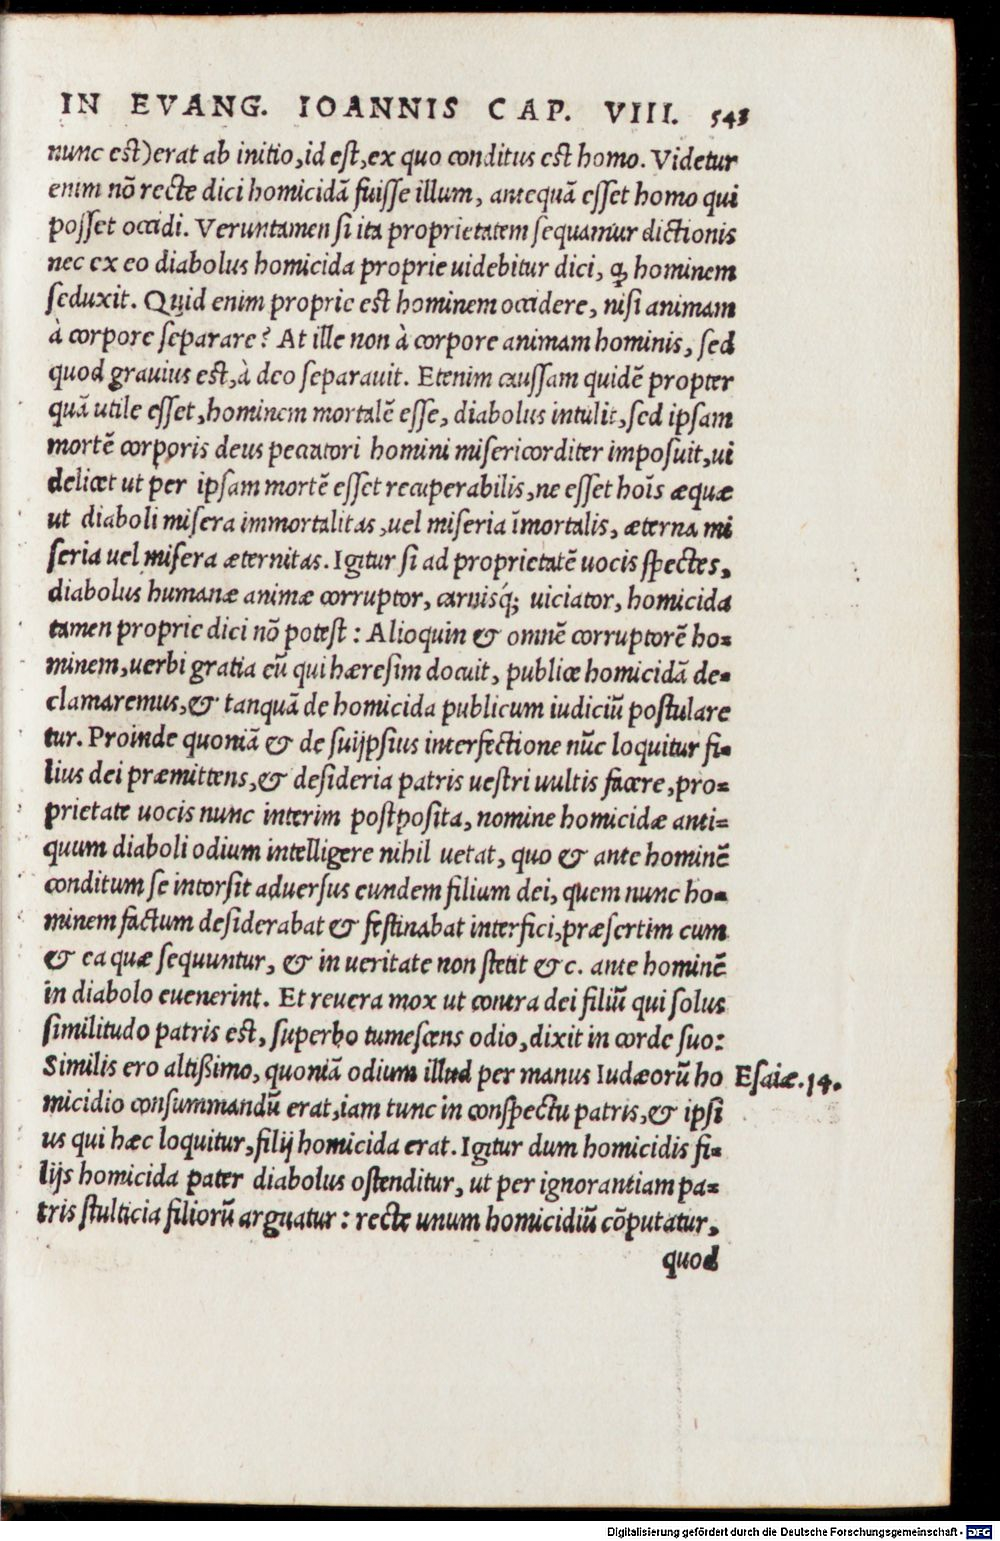 IN EVANG. IOANNIS CAP. VIII. 543
nunc est)erat ab initio,id eſt,ex quo conditus est homo. Videtur
enim nō recte dici homicidā fuiſſe illum, antequā eſſet homo qui
poſſet occidi. Veruntamen ſi ita proprietatem ſequamur dictionis
nec ex eo diabolus homicida proprie uidebitur dici, ꝙ hominem
ſeduxit. Quid enim proprie est hominem occidere, niſi animam
à corpore ſeparare? At ille non à corpore animam hominis, ſed
quod grauius est,à deo ſeparauit. Etenim cauſſam quidē propter
quā utile eſſet,hominem mortalē eſſe, diabolus intulit,ſed ipſam
mortē corporis deus peccatori homini miſericorditer impoſuit,ui
delicet ut per ipſam mortē eſſet recuperabilis,ne eſſet hoīs æquæ
ut diaboli miſera immortalitas,uel miſeria īmortalis, æterna mi
ſeria uel miſera æternitas. Igitur ſi ad proprietatē uocis ſpectes,
diabolus humanæ animæ corruptor, carnisq́; uiciator, homicida
tamen proprie dici nō poteſt : Alioquin & omnē corruptorē ho=
minem,uerbi gratia eū qui hæreſim docuit, publice homicidā de=
clamaremus,& tanquā de homicida publicum iudiciū poſtulare
tur. Proinde quoniā & de ſuijpſius interfectione nūc loquitur fi=
lius dei præmittens,& deſideria patris ueſtri uultis facere,pro=
prietate uocis nunc interim poſtpoſita, nomine homicidæ anti=
quum diaboli odium intelligere nihil uetat, quo & ante hominē
conditum ſe intorſit aduerſus eundem filium dei, quem nunc ho=
minem factum deſiderabat & feſtinabat interfici,præſertim cum
& ea quæ ſequuntur, & in ueritate non ſtetit &c. ante hominē
in diabolo euenerint. Et reuera mox ut contra dei filiū qui ſolus
ſimilitudo patris est, ſuperbo tumeſcens odio,dixit in corde ſuo:
Similis ero altißimo, quoniā odium illud per manus Iudæorū ho Eſaiæ.14.
micidio conſummandū erat,iam tunc in conſpectu patris,& ipſi
us qui hæc loquitur,filij homicida erat. Igitur dum homicidis fi=
lijs homicida pater diabolus oſtenditur, ut per ignorantiam pa=
tris ſtulticia filiorū arguatur : recte unum homicidiū cōputatur,
quod
Digitalisierung gefördert durch die Deutsche Forschungsgemeinschaft - DFG